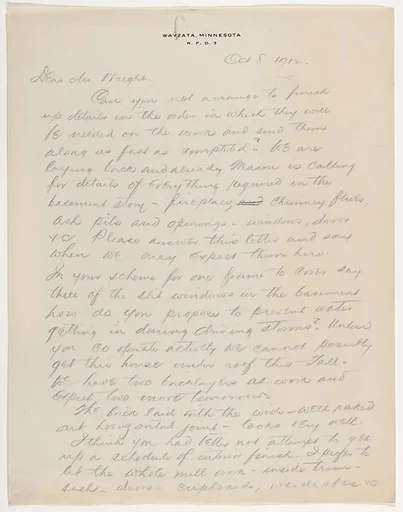 WAYZATA, MINNESOTA
R. F. D. 3
Oct 8 1912.
Dear Mr. Wright.
Can you not arrange to finish
up details in the order in which they will
be needed on the work and send them
along as fast as completed? We are
laying brick and already Mason is calling
for details of everything required in the
basement story - fireplace, and chimney flues,
ash pits and openings - windows, doors
&c. Please answer this letter and say
when we may expect them here.
In your scheme for one frame to cover say
three of the slit windows in the basement
how do you propose to prevent water
getting in during driving storms? Unless
you co operate actively we cannot possibly
get this house under roof this Fall-
We have two bricklayers at work and
expect two more tomorrow.
The brick laid with the wide - well raked
out horizontal joint - looks very well.
I think you had better not attempt to get
up a schedule of interior finish. I prefer to
let the whole mill work - inside trim -
sash - doors - cupboards, wardrobes &c